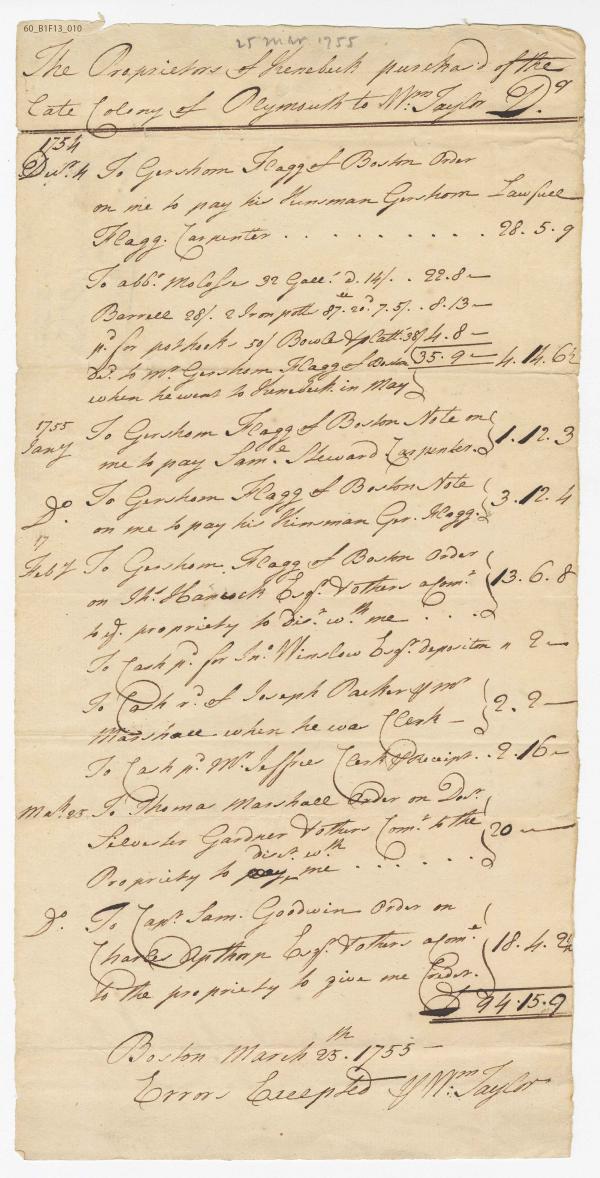 60_B1F13_010
25 Mar 1755
The Proprietors of Kenebeck purchas'd of the
Late Colony of Plymouth to Wm Taylor Dr
1754
Decr. 4 To Gershom Flagg of Boston Order
on me to pay his Kinsman Gershom Lawfull
Flagg. Carpenter . . . . . . . . . . 28. 5. 9
To abbt. Molosse 32 Gall. d. 14/. . 22.8 —
Barrell 28/. 2 Iron potts 87. 20d. 7. 5/. . 8. 13 —
pd. for pothooks 50/ Bowls & platt. 38/ 4. 8 —
Dd. to Mr Gershom Flagg of Boston 35. 9 — 4. 14. 6½
when he went to Kenebeck in May
1755
Jany To Gershom Flagg of Boston Note on
me to pay Saml Steward Carpenter. 1. 12. 3
Do. To Gershom Flagg of Boston Note
on me to pay his Kinsman Ger. Flogg. 3. 12. 4
17
Feby To Gershom Flagg of Boston Order
on Ths. Hancock Esqr. & others a Comt. 13. 6. 8
to ye. propriety to disct. wth me . . . .
To Cash pd. for Jno. Winslow Esqr. depositon " 2 —
To Cash rd. of Joseph Packer of Mr
Marshall when he was Clerk — 2. 2 —
To Cash pd Mr. Jeffries Clerk & Receipt . . 2. 16 —
Mach. 25 To Thomas Marshall Order on Doct.
Silvester Gardner & others Comt. to the 20 —
disct. wth
Propriety to pay me . . . . . . .
Do. To Capt. Sam. Goodwin Order on
Charles Apthorp Esqr. & others a Come 18. 4. 2½
to the propriety to give me Creder.
£ 94. 15. 9
Boston March 25th. 1755 —
Errors Excepted Wm Taylor